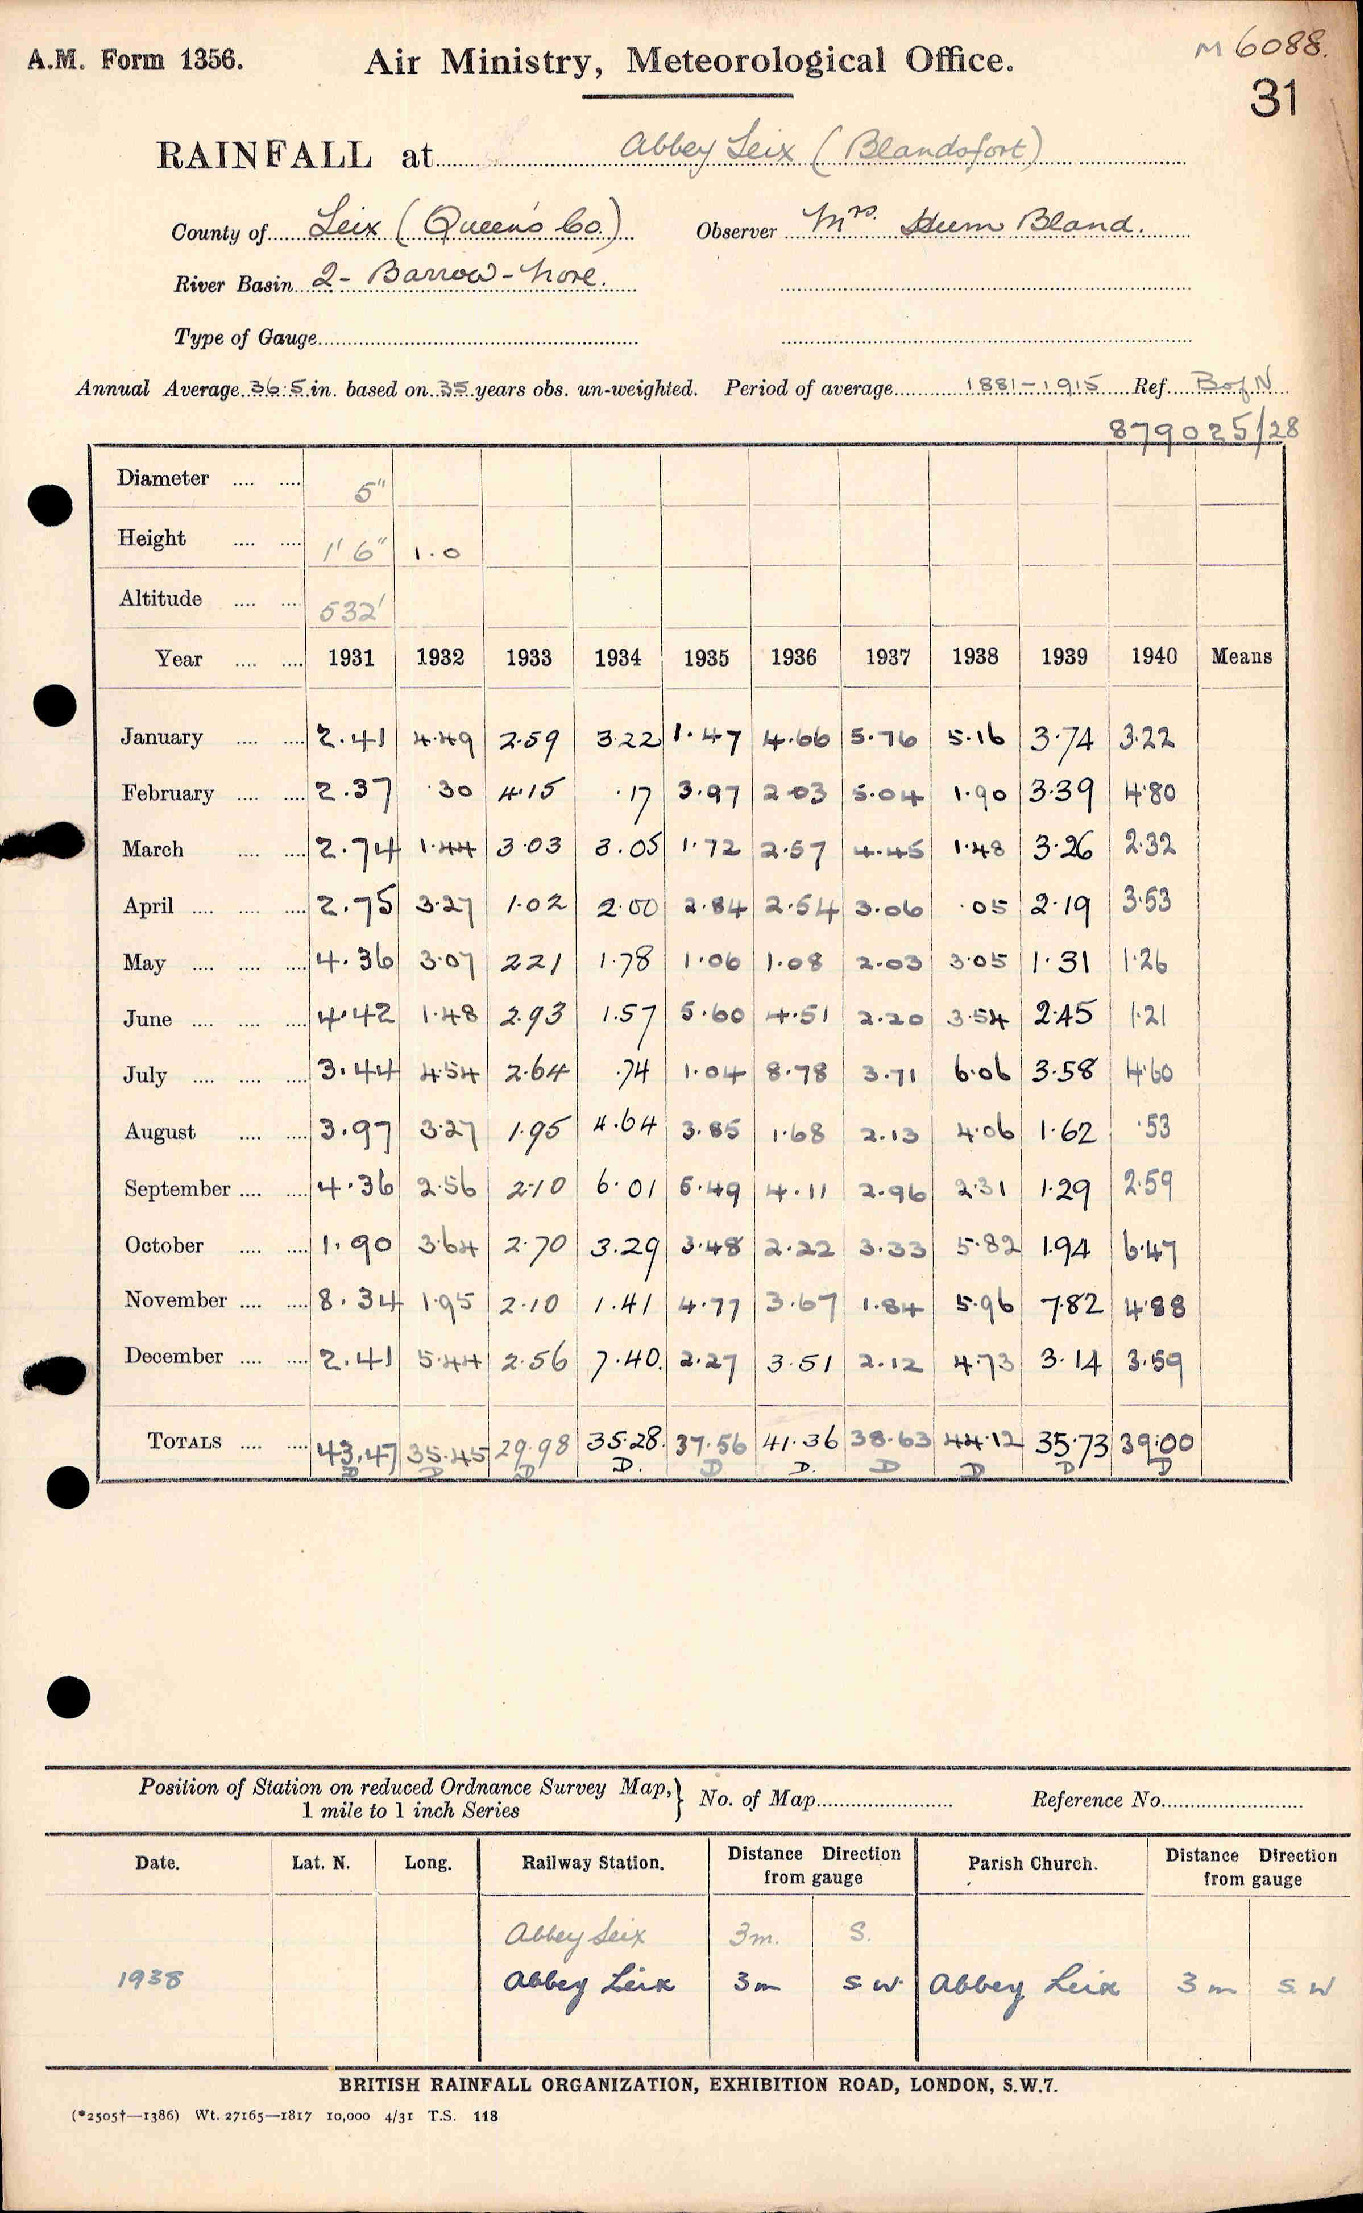 A.M. Form 1356.
Air Ministry, Meteorological Office.
M 6088.
31
RAINFALL at Abbey Leix (Blandsfort)
County of Leix (Queen's Co.) Observer Mrs. Hum Bland.
River Basin 2- Barrow-Nore.
Type of Gauge
Annual Average 36.5 in. based on 35 years obs. un-weighted. Period of average 1881-1915 Ref. B of N
879025/28
Diameter 5"
Height 1' 6" 1.0
Altitude 532'
Year 1931 1932 1933 1934 1935 1936 1937 1938 1939 1940 Means
January 2.41 4.49 2.59 3.22 1.47 4.66 5.76 5.16 3.74 3.22
February 2.37 .30 4.15 .17 3.97 2.03 5.04 1.90 3.39 4.80
March 2.74 1.44 3.03 3.05 1.72 2.57 4.45 1.48 3.26 2.32
April 2.75 3.27 1.02 2.00 2.84 2.54 3.06 .05 2.19 3.53
May 4.36 3.07 2.21 1.78 1.06 1.08 2.03 3.05 1.31 1.26
June 4.42 1.48 2.93 1.57 5.60 4.51 2.20 3.54 2.45 1.21
July 3.44 4.54 2.64 .74 1.04 8.78 3.71 6.06 3.58 4.60
August 3.97 3.27 1.95 4.64 3.85 1.68 2.13 4.06 1.62 .53
September 4.36 2.56 2.10 6.01 5.49 4.11 2.96 2.31 1.29 2.59
October 1.90 3.64 2.70 3.29 3.48 2.22 3.33 5.82 1.94 6.47
November 8.34 1.95 2.10 1.41 4.77 3.67 1.84 5.96 7.82 4.88
December 2.41 5.44 2.56 7.40 2.27 3.51 2.12 4.73 3.14 3.59
TOTALS 43.47 35.45 29.98 35.28 37.56 41.36 38.63 44.12 35.73 39.00
D D D. D D. D D D D
Position of Station on reduced Ordnance Survey Map, 1 mile to 1 inch Series } No. of Map Reference No.
Date. Lat. N. Long. Railway Station. Distance Direction from gauge Parish Church. Distance Direction from gauge
Abbey Leix 3m. S.
1938 Abbey Leix 3m S W Abbey Leix 3m S. W
BRITISH RAINFALL ORGANIZATION, EXHIBITION ROAD, LONDON, S.W.7.
(*2505†—1386) Wt. 27165—1817 10,000 4/31 T.S. 118